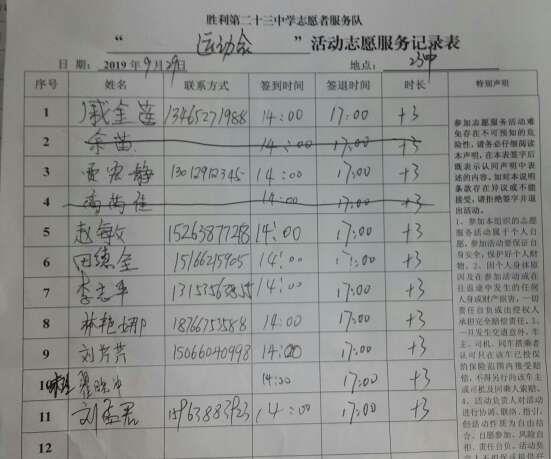 胜利第二十三中学志愿者服务队
“运动会”活动志愿服务记录表
日期：2019年9月29日 地点：23中
序号 姓名 联系方式 签到时间 签退时间 时长 特别声明
1 13465271988 14:00 17:00 +3
2 余苗 14:00 17:00 +3
3 13012912345 14:00 17:00 +3
4 14:00 17:00 +3
5 赵敏 15263877248 14:00 17:00 +3
6 田德全 14:00 17:00 +3
7 李志华 14:00 17:00 +3
8 林艳娜 18766753588 14:00 17:00 +3
9 刘芹芹 15066040998 14:00 17:00 +3
10 14:00 17:00 +3
11 刘孟君 15963883923 14:00 17:00 +3
12
参加志愿服务活动难
免存在不可预知的危
险性，请务必仔细阅读
本声明，在本表签字后
既表示认同声明中表
述的内容。如对本说明
条款存在异议或不能
接受，请拒绝签字并退
出活动。
1、参加本组织的志愿
服务活动属于个人自
愿。参加活动要保证自
身安全，保护好个人财
物。2、因个人身体原
因及在参加活动或在
往返途中发生的任何
人身或财产损害，一切
责任自负或由侵权人
承担完全赔偿责任。3、
一旦发生交通意外，车
主、司机、同车搭乘者
认可只在该车已投保
的保险范围内接受赔
偿，不得另行向该车主
或司机及同乘人索赔。
4、活动负责人对活动
进行协调、联络、指引，
但活动性质为自由结
合、自愿参加、风险自
担、责任自负，活动负